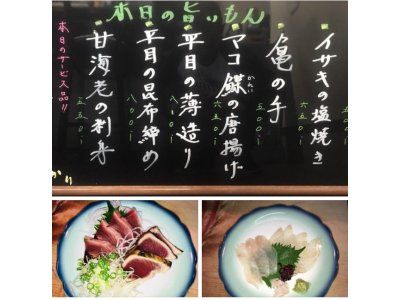 本日の旨いもん
イサキの塩焼き
六五〇
亀の手
五五〇
マコ鰈の唐揚げ
かれい
六五〇
平目の薄造り
八〇〇
平目の昆布締め
八〇〇
甘海老の刺身
五五〇
本日のサービス品!!